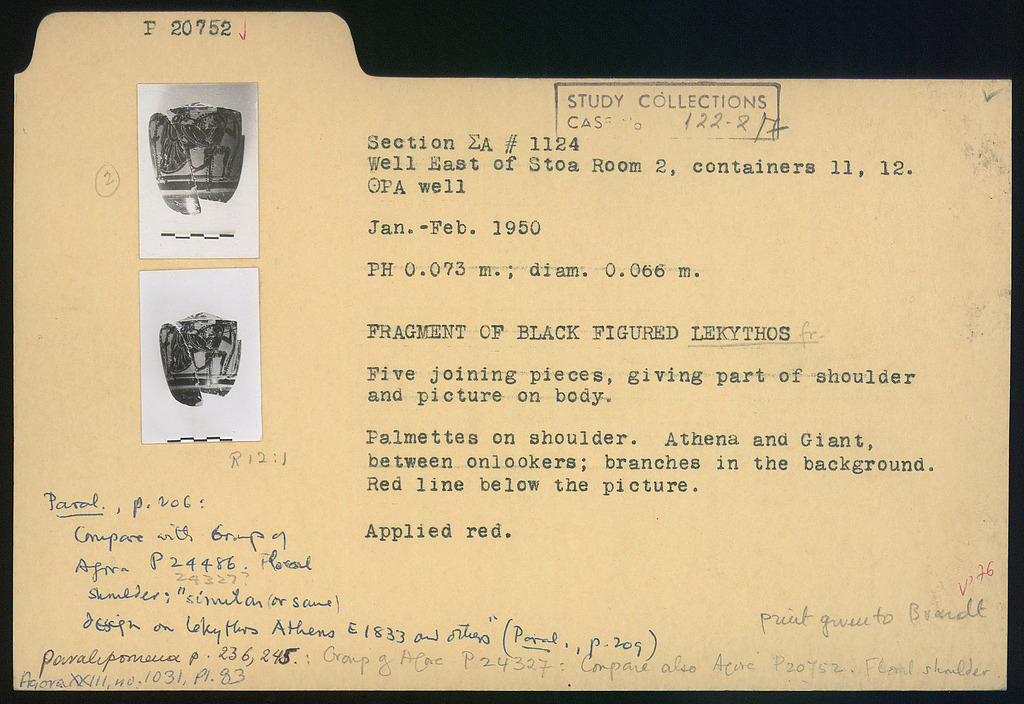 P 20752 ✓
STUDY COLLECTIONS
CASE No 122-2/7
Section ΣΑ # 1124
Well East of Stoa Room 2, containers 11, 12.
ΘΡΑ well
Jan.-Feb. 1950
PH 0.073 m.; diam. 0.066 m.
FRAGMENT OF BLACK FIGURED LEKYTHOS fr.
Five joining pieces, giving part of shoulder
and picture on body.
Palmettes on shoulder. Athena and Giant,
between onlookers; branches in the background.
Red line below the picture.
Applied red.
2
R 12:1
Paral., p. 206:
Compare with Group of
Agora P 24486. Floral
24327?
shoulder; "similar (or same)
design on lekythos Athens E 1833 and others" (Paral., p. 209)
Paralipomena p. 236, 245.: Group of Agora P 24327: Compare also Agora P20752. Floral shoulder
Agora XXIII, no. 1031, Pl. 83
✓ '76
print given to Brandt